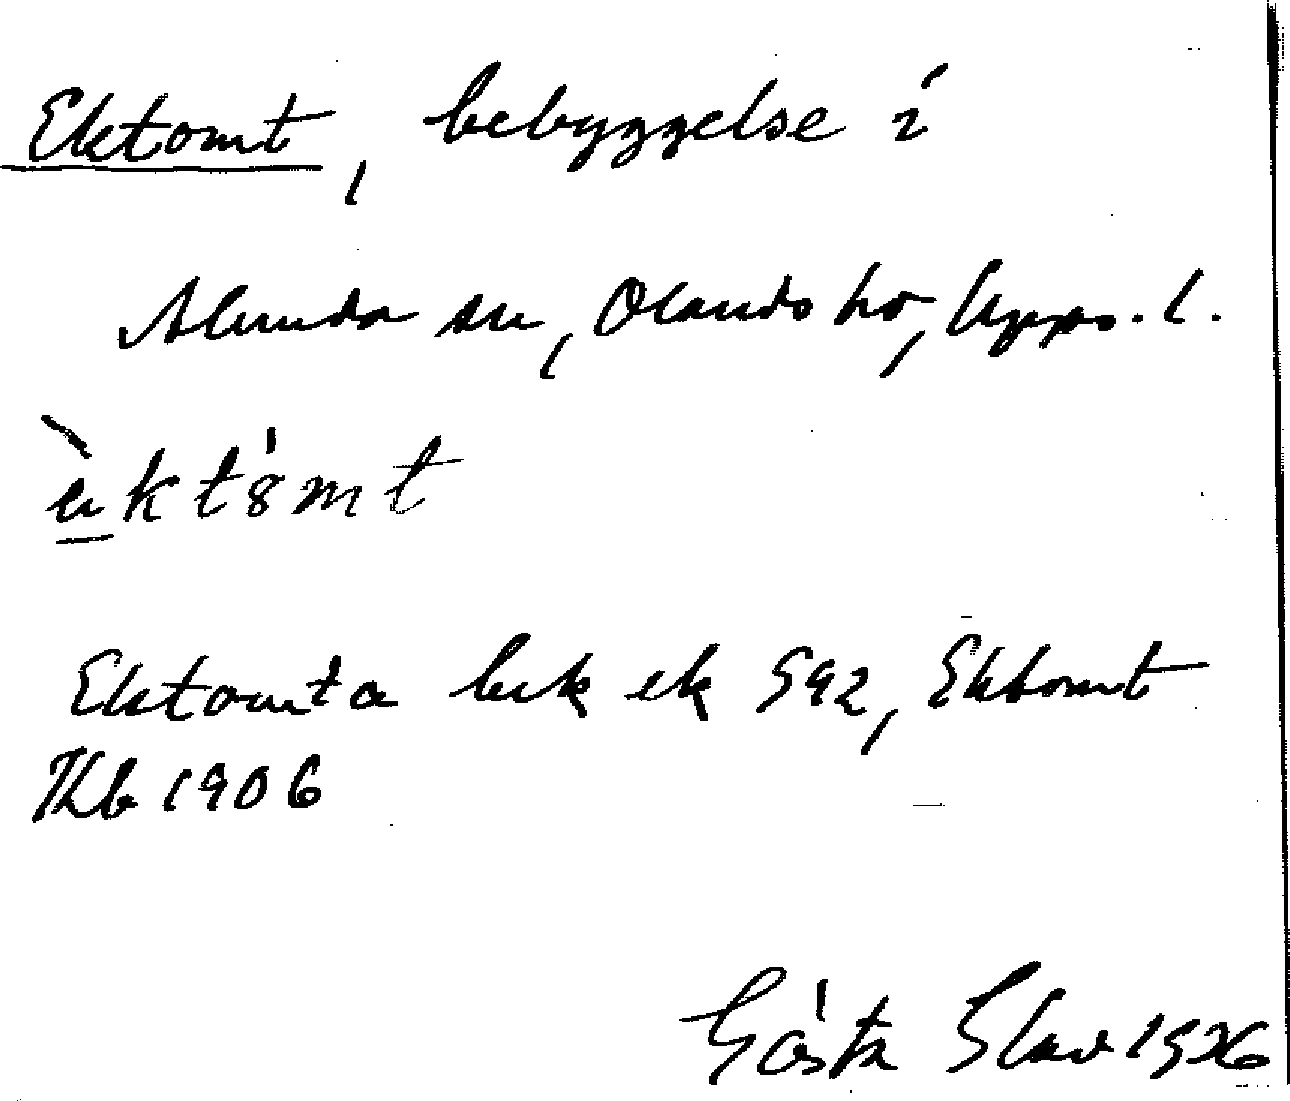 Ektomt, bebyggelse i
Alunda sn, Olands hd, Upps. l.
Ektomta bek ek 592, Ektomt
Hb 1906
Gösta Slav 1926